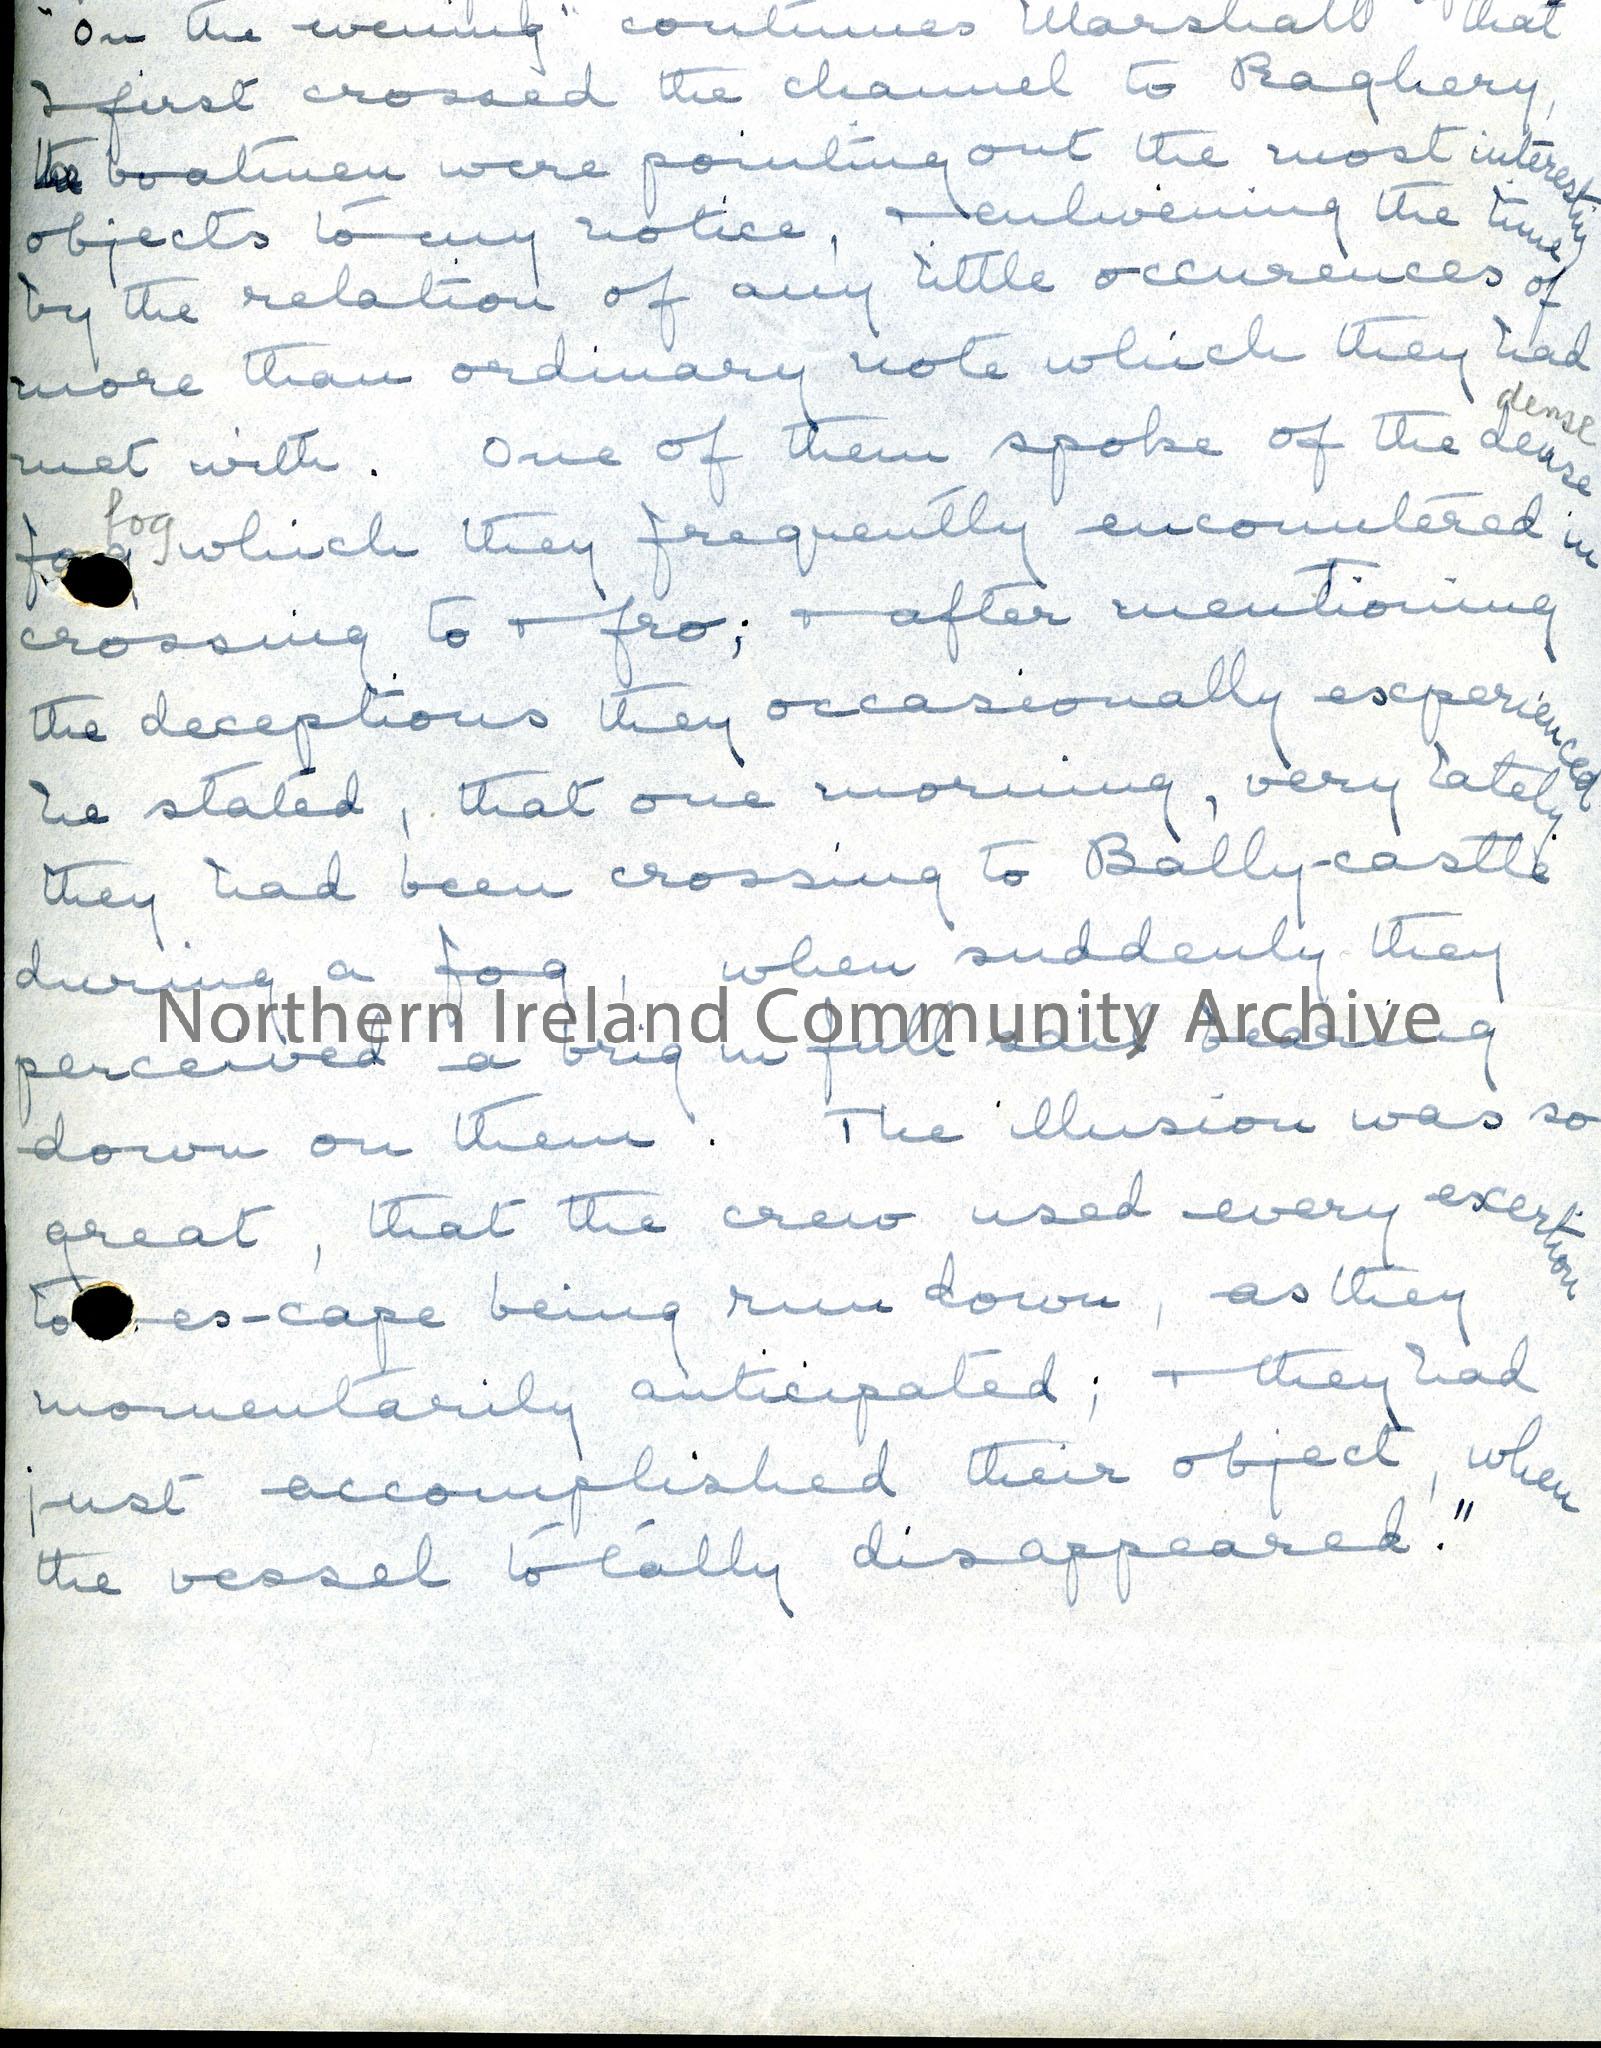 "On the evening" continues Marshall "that
I first crossed the channel to Raghery,
the boatmen were pointing out the most interesting
objects to my notice, + enlivening the time
by the relation of any little occurences of
more than ordinary note which they had
met with. One of them spoke of the dense dense
fog fog which they frequently encountered in
crossing to + fro; + after mentioning
the deceptions they occasionally experienced
he stated, that one morning, very lately
they had been crossing to Bally-castle
during a fog, when suddenly they
Northern Ireland Community Archive
perceived a brig in full sail bearing
down on them. The illusion was so
great, that the crew used every exertion
to es-cape being run down, as they
momentarily anticipated; + they had
just accomplished their object, when
the vessel totally disappeared."